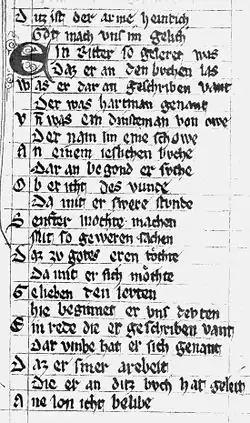 Ditz ist der arme heinrich
Got mach vns im gelich
Ein Ritter so geleret was
Daz er an den bvchen las
Waz er dar an geschriben vant
Der was hartman genant
Vñ was ein dinstman von owe
Der nam im eine schowe
An einem ieslichen bvche
Dar an begond er svche
Ob er icht des vunde
Da mit er swere stvnde
Senfter mochte machen
Mit so geweren sachen
Daz zv gotes eren tochte
Da mit er sich möchte
Gelieben den levten
hie beginnet er vns devten
Ein rede die er geschriben vant
Dar vmbe hat er sich genant
Daz er siner arebeit
Die er an ditz bvch hat geleit
Ane lon icht belibe